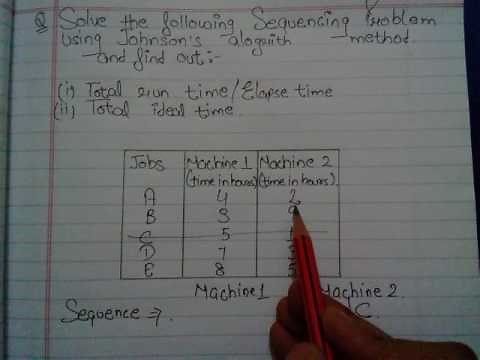 Q Solve the following Sequencing Problem
using Johnson's alogrith method
and find out:-
(i) Total run time/Elapse time
(ii) Total ideal time.
Jobs Machine 1 Machine 2
(time in hours) (time in hours)
A 4 2
B 3
C 5
D 7
E 8
Machine 1 Machine 2.
Sequence ⇒. C.